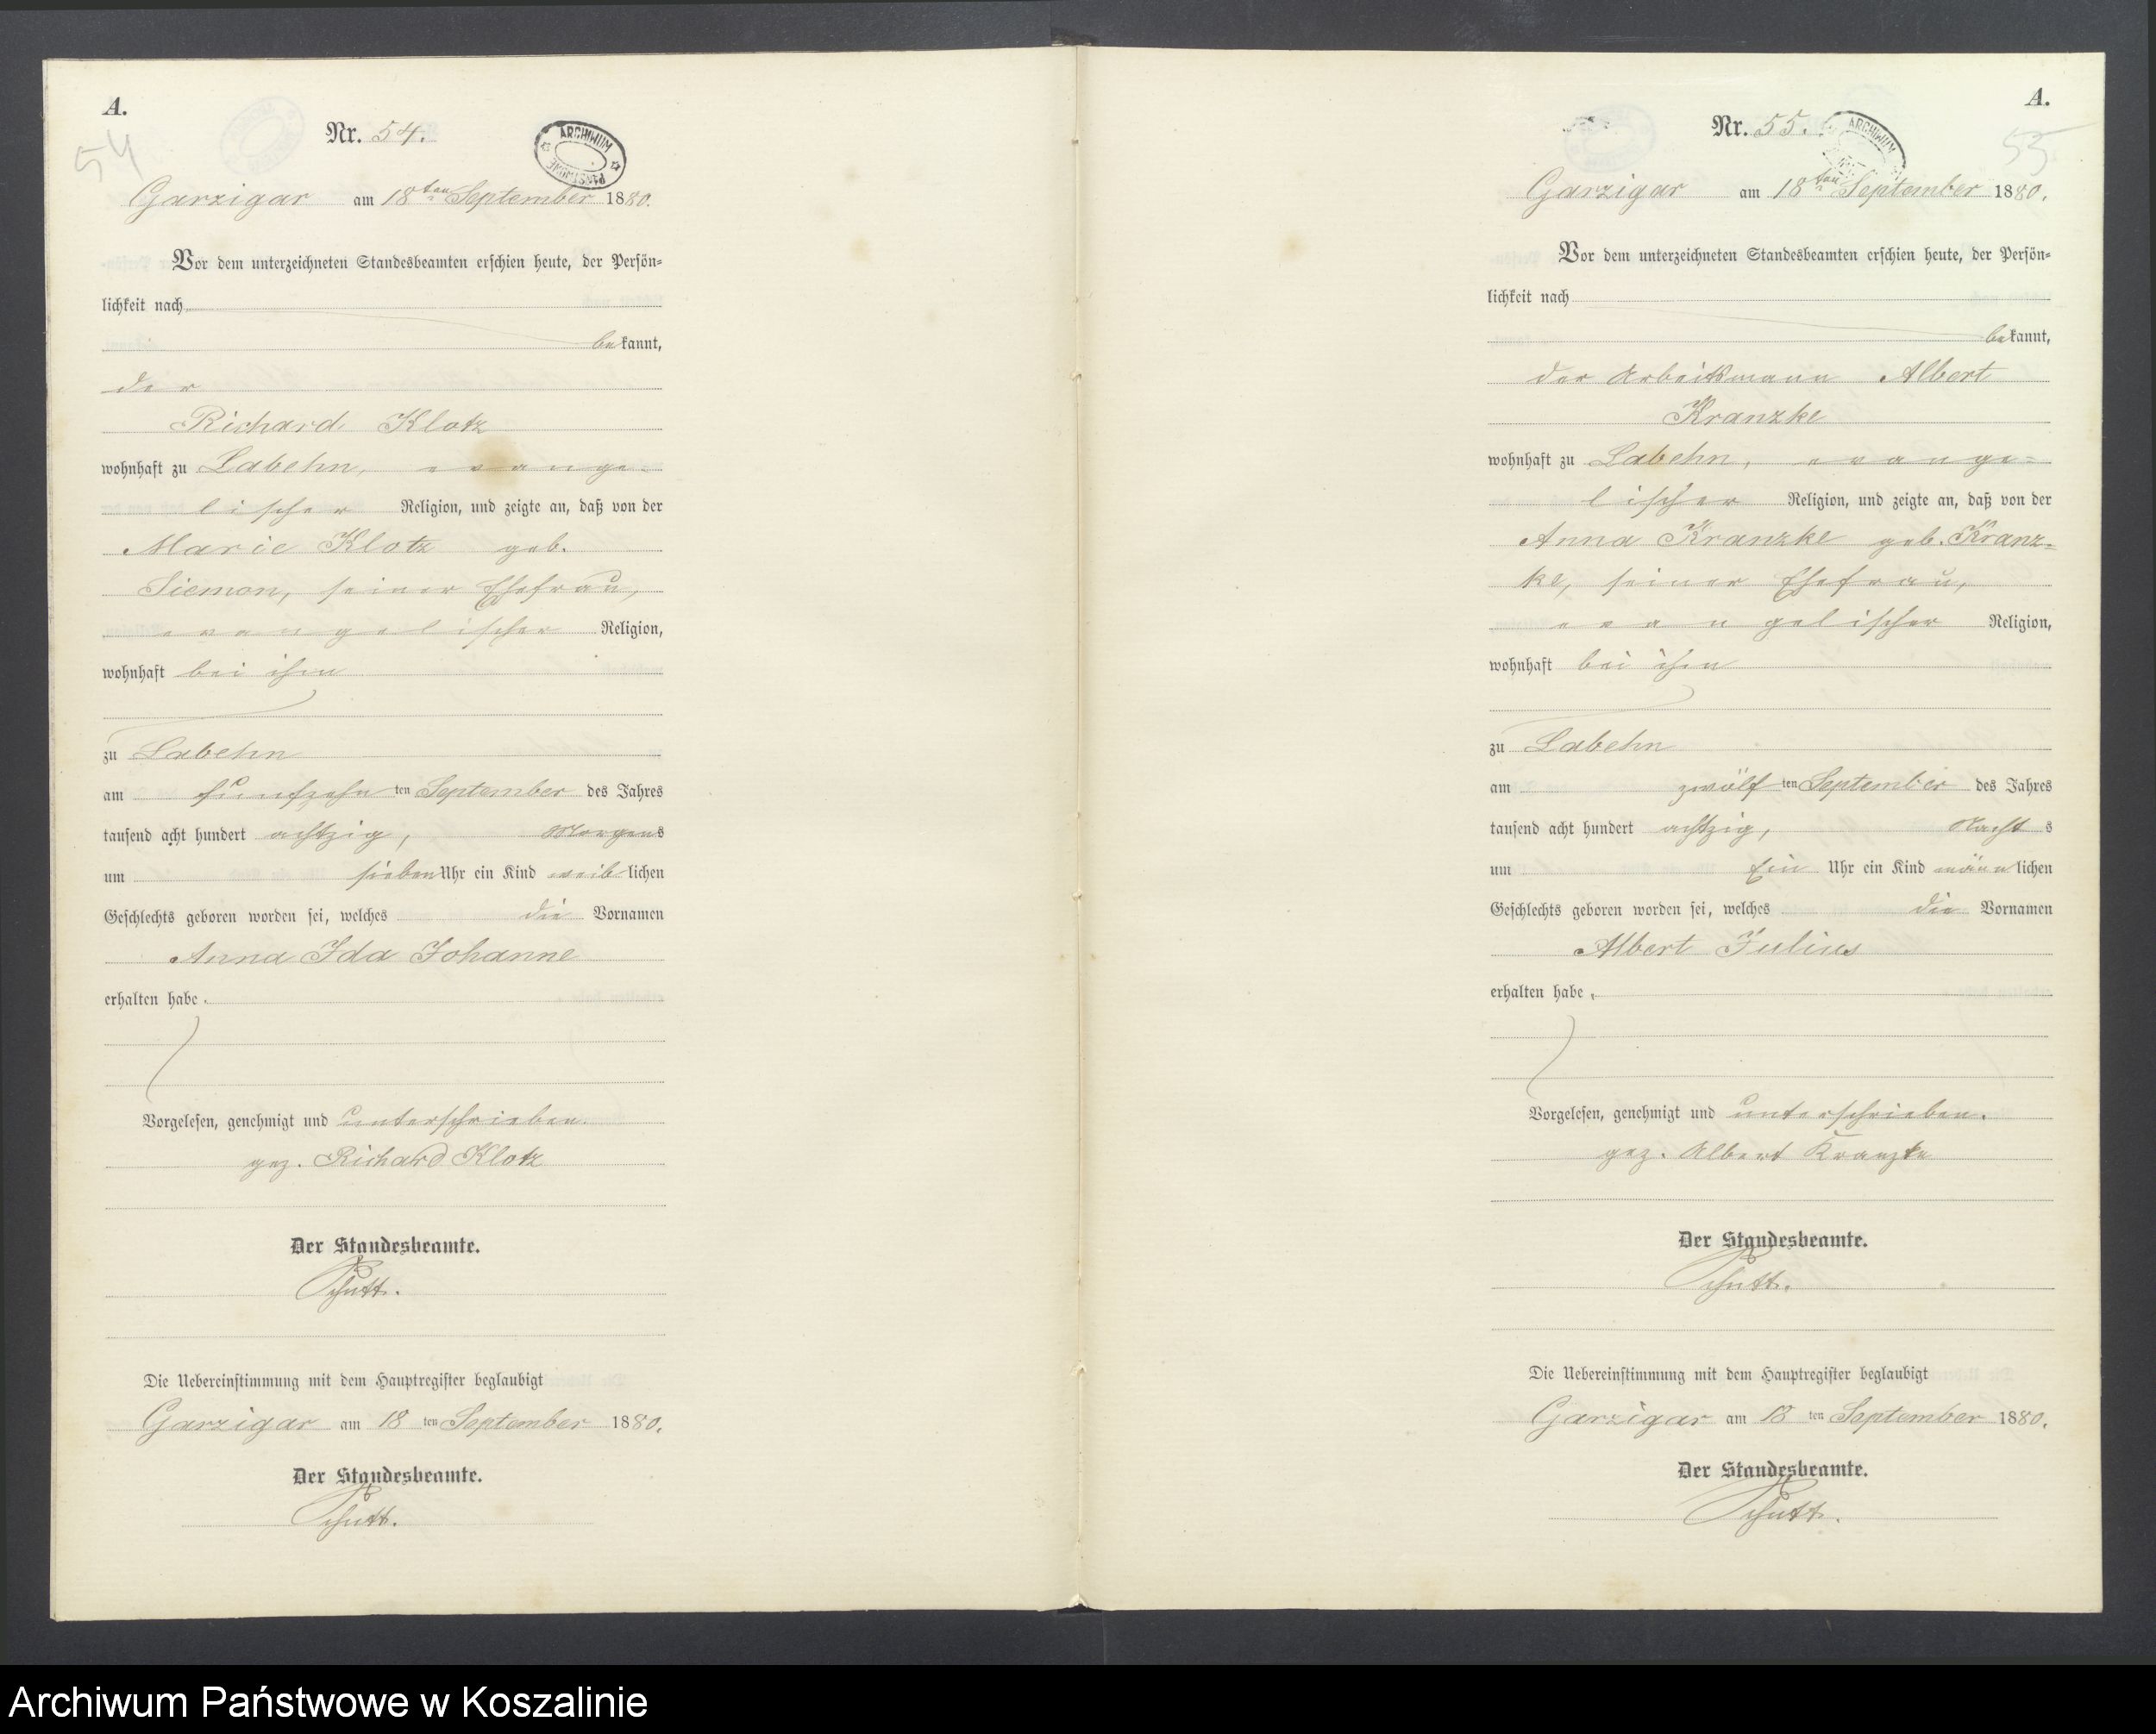 A.
54
Nr. 54.
ARCHIWUM
PAŃSTWOWE
Garzigar am 18ten September 1880.
Vor dem unterzeichneten Standesbeamten erschien heute, der Persön-
lichkeit nach
bekannt,
der
Richard Klotz
wohnhaft zu Labehn, evange-
lischer Religion, und zeigte an, daß von der
Marie Klotz geb.
Siemon, seiner Ehefrau,
evangelischer Religion,
wohnhaft bei ihm
zu Labehn
am fünfzehnten September des Jahres
tausend acht hundert achtzig, Morgens
um sieben Uhr ein Kind weiblichen
Geschlechts geboren worden sei, welches die Vornamen
Anna Ida Johanne
erhalten habe.
Vorgelesen, genehmigt und unterschrieben.
gez. Richard Klotz
Der Standesbeamte.
Schutt.
Die Uebereinstimmung mit dem Hauptregister beglaubigt
Garzigar am 18ten September 1880.
Der Standesbeamte.
Schutt.
A.
55
Nr. 55.
ARCHIWUM
Garzigar am 18ten September 1880.
Vor dem unterzeichneten Standesbeamten erschien heute, der Persön-
lichkeit nach
bekannt,
der Arbeitsmann Albert
Kranzke
wohnhaft zu Labehn, evange-
lischer Religion, und zeigte an, daß von der
Anna Kranzke geb. Kranz-
ke, seiner Ehefrau,
evangelischer Religion,
wohnhaft bei ihm
zu Labehn
am zwölften September des Jahres
tausend acht hundert achtzig, Nachts
um Ein Uhr ein Kind männlichen
Geschlechts geboren worden sei, welches die Vornamen
Albert Julius
erhalten habe.
Vorgelesen, genehmigt und unterschrieben.
gez. Albert Kranzke
Der Standesbeamte.
Schutt.
Die Uebereinstimmung mit dem Hauptregister beglaubigt
Garzigar am 18ten September 1880.
Der Standesbeamte.
Schutt.
Archiwum Państwowe w Koszalinie